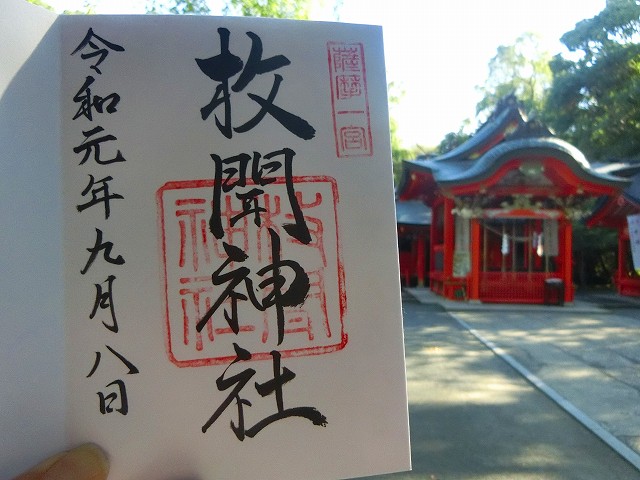 薩摩一宮
枚聞神社
枚聞神社
令和元年九月八日